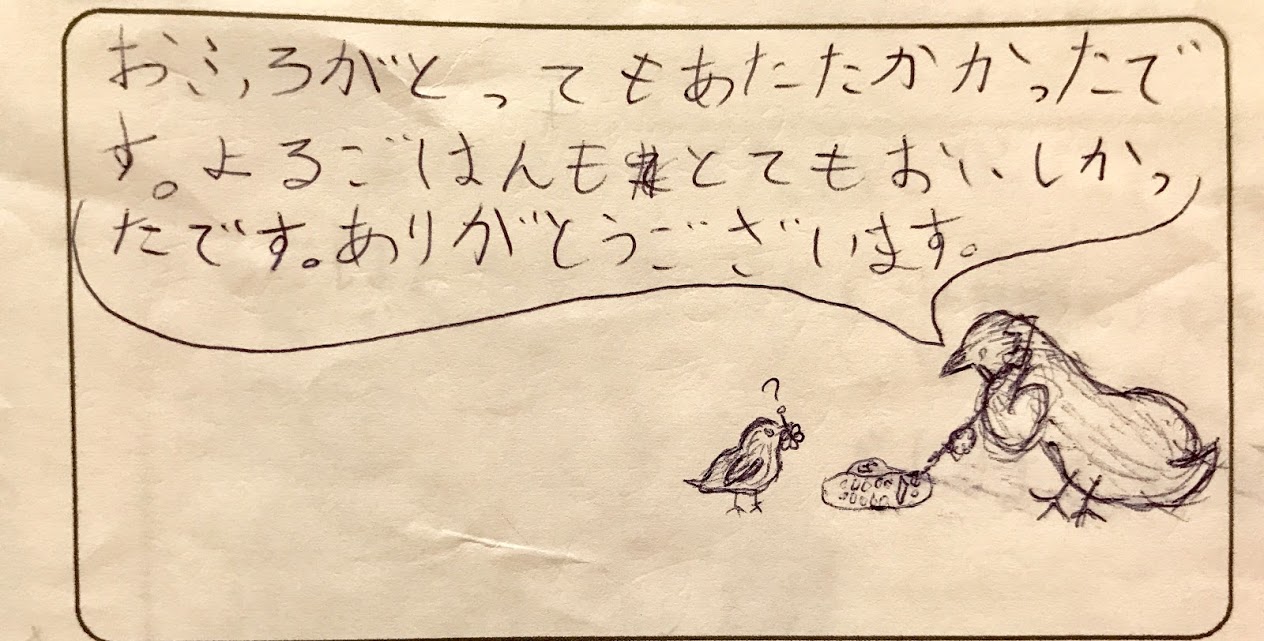 おふろがとってもあたたかかったで
す。よるごはんもとてもおいしかっ
たです。ありがとうございます。
?